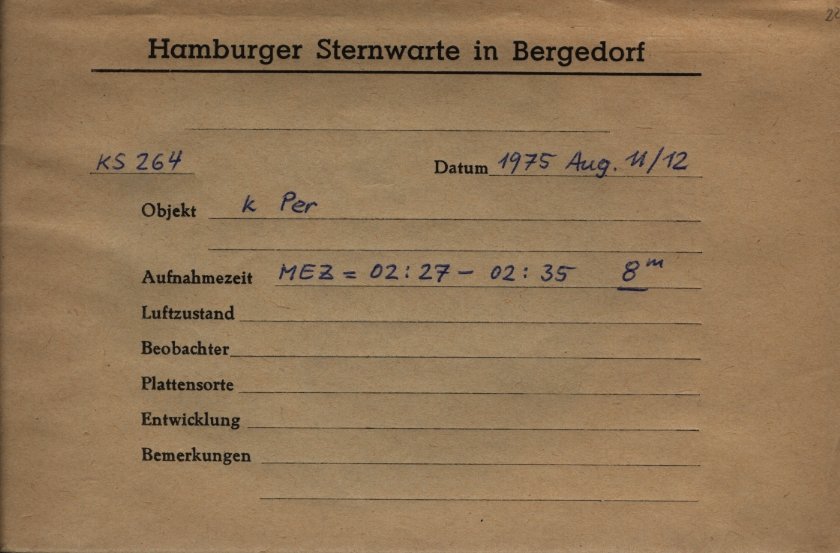 Hamburger Sternwarte in Bergedorf
KS 264 Datum 1975 Aug. 11/12
Objekt k Per
Aufnahmezeit MEZ = 02:27 - 02:35 8ᵐ
Luftzustand
Beobachter
Plattensorte
Entwicklung
Bemerkungen